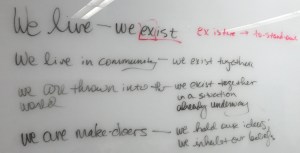 We live — we exist
ex istere → to stand out
We live in community — we exist together
we are thrown into the world — we exist together in a situation already underway
we are make-doers — we hold our ideas; we inhabit our beliefs